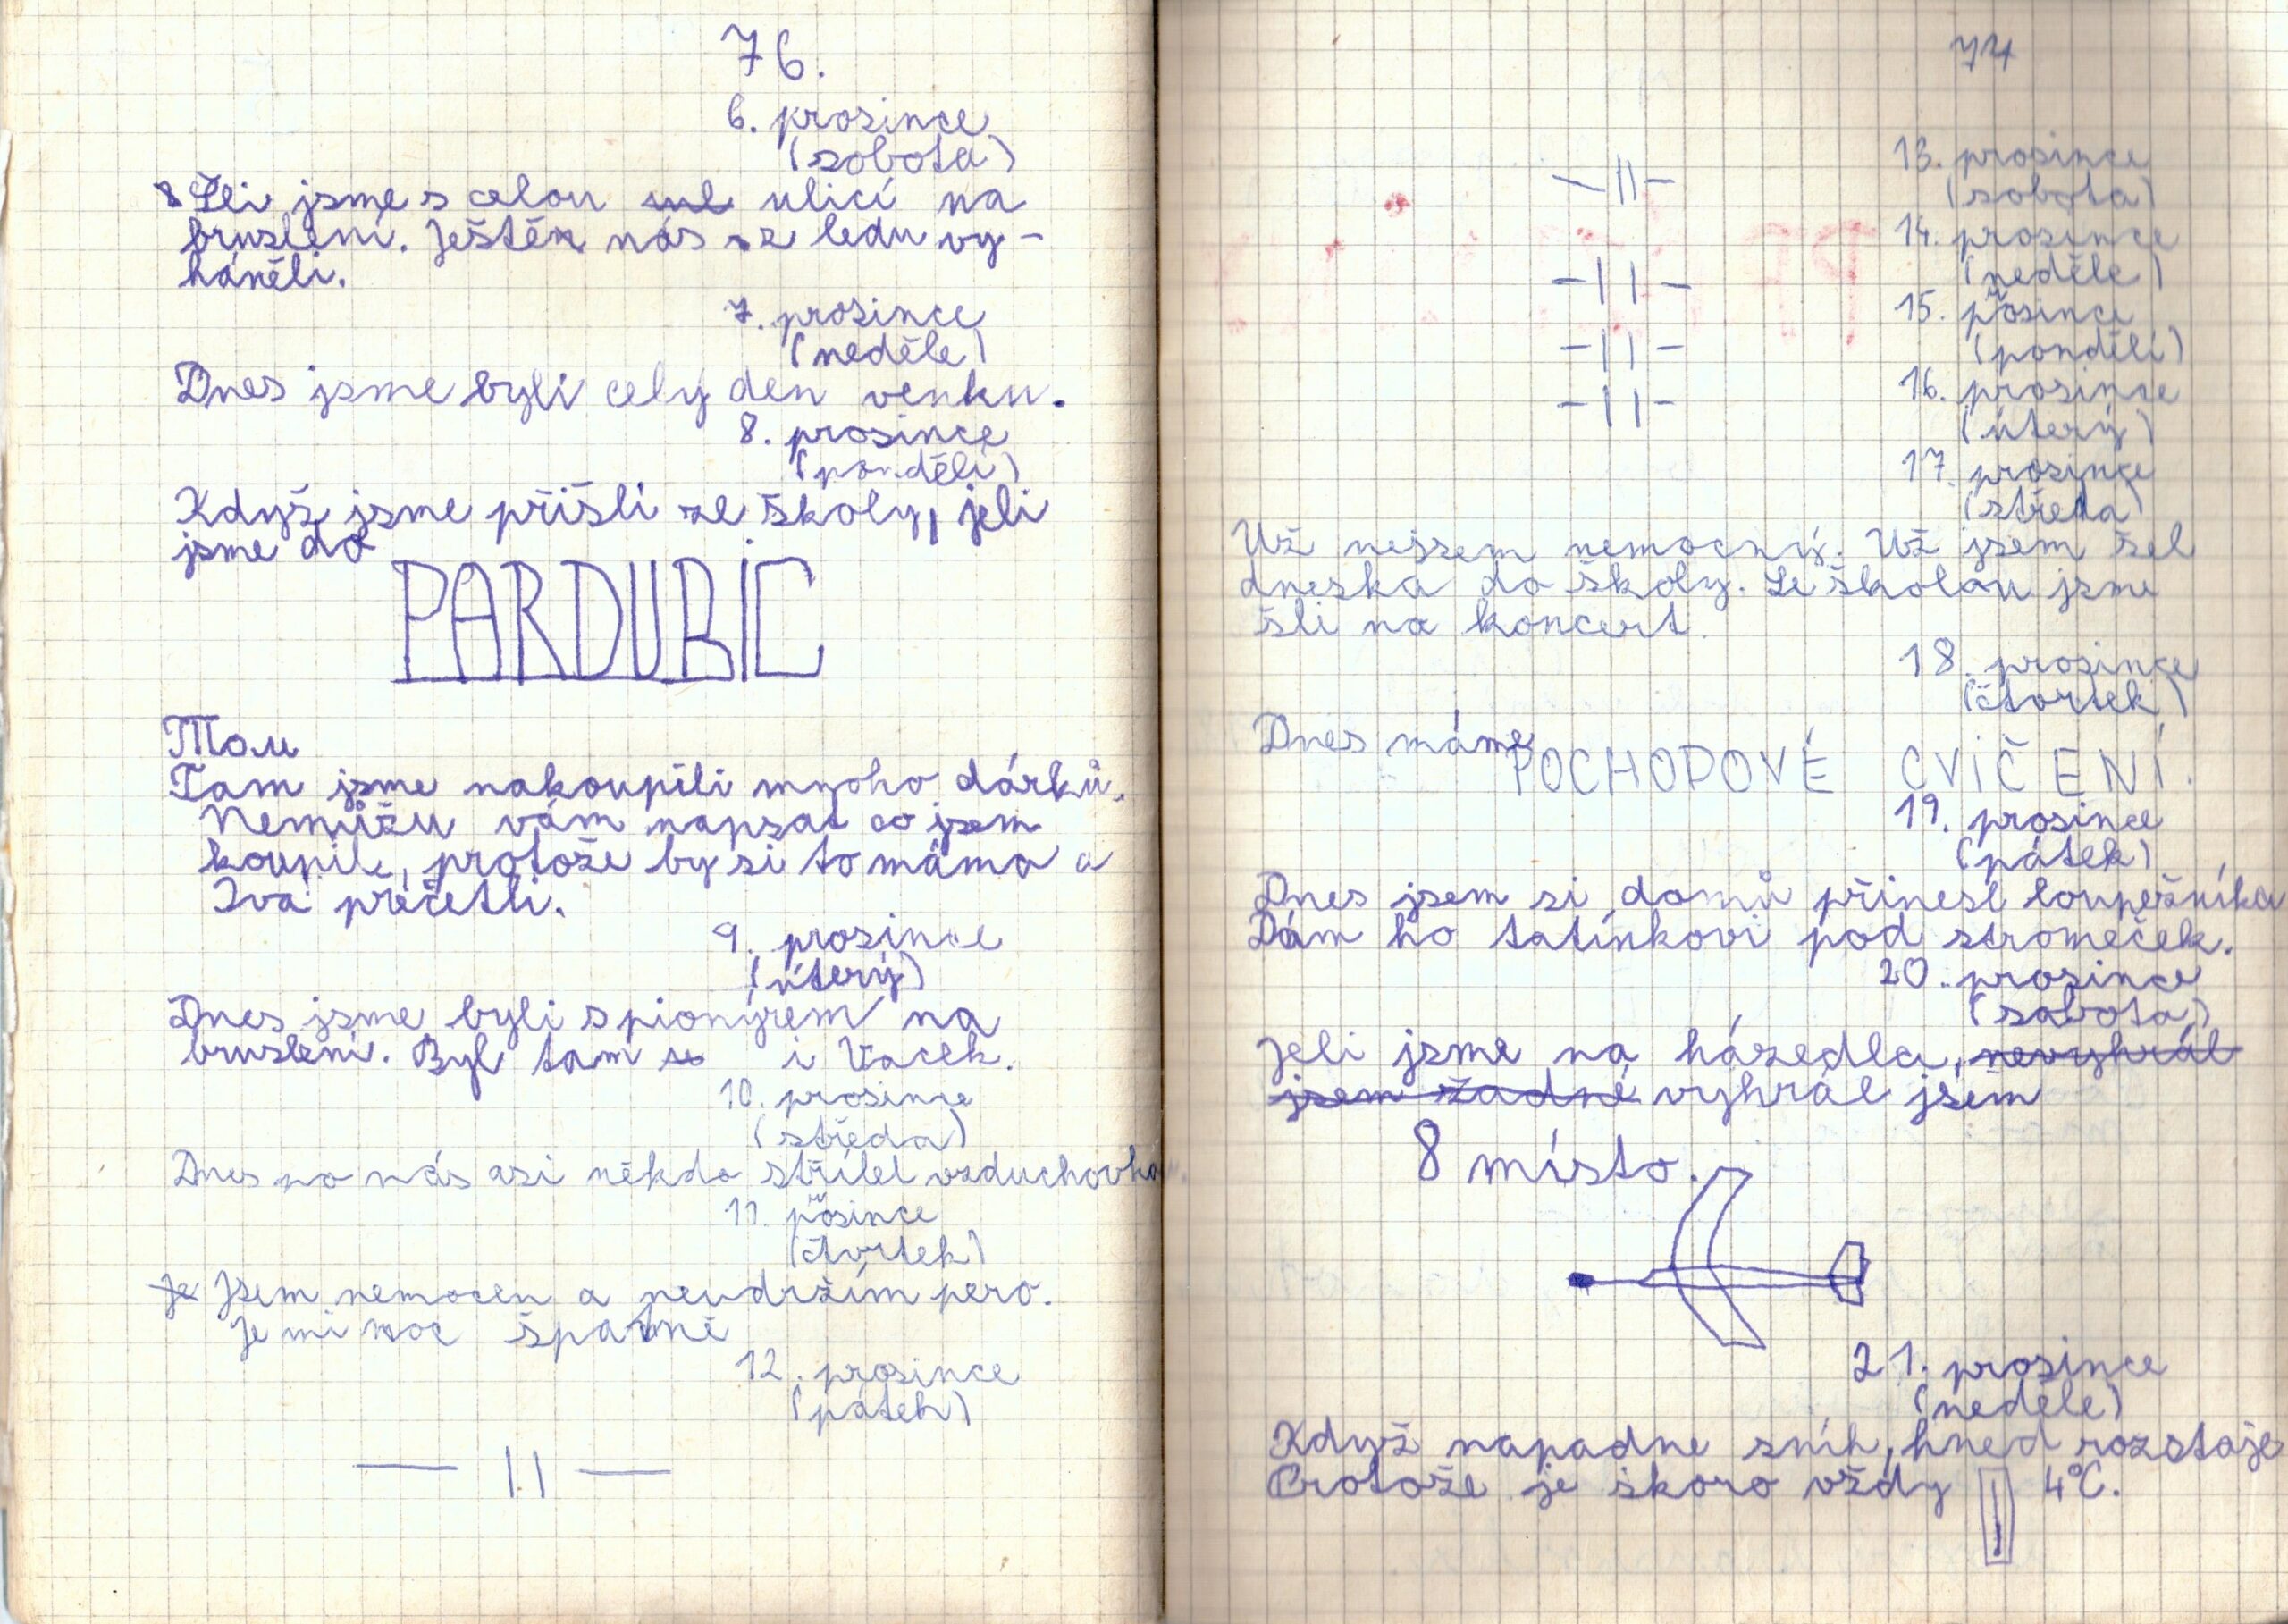 76.
6. prosince
(sobota)
Šli jsme s celou ulicí na
bruslení. Ještě nás z ledu vy-
háněli.
7. prosince
(neděle)
Dnes jsme byli celý den venku.
8. prosince
(pondělí)
Když jsme přišli ze školy, jeli
jsme do
PARDUBIC
Tam jsme nakoupili mnoho dárků.
Nemůžu vám napsat co jsem
koupil, protože by si to máma a
Iva přečetli.
9. prosince
(úterý)
Dnes jsme byli s pionýrem na
bruslení. Byl tam i Vacek.
10. prosince
(středa)
Dnes po nás asi někdo střílel vzduchovkou.
11. prosince
(čtvrtek)
Je Jsem nemocen a neudržím pero.
Je mi moc špatně
12. prosince
(pátek)
— 11 —
74
13. prosince
— 11 —
(sobota)
14. prosince
— 11 —
(neděle)
15. prosince
— 11 —
(pondělí)
16. prosince
— 11 —
(úterý)
17. prosince
(středa)
Už nejsem nemocný. Už jsem šel
dneska do školy. Se školou jsme
šli na koncert.
18. prosince
(čtvrtek)
Dnes máme POCHODOVÉ CVIČENÍ.
19. prosince
(pátek)
Dnes jsem si domů přinesl loupežníka
Dám ho tatínkovi pod stromeček.
20. prosince
(sobota)
Jeli jsme na házedla, nevyhrál
jsem žadné vyhrál jsem
8 místo.
21. prosince
(neděle)
Když napadne sníh, hned rozstaje
Protože je skoro vždy 4°C.